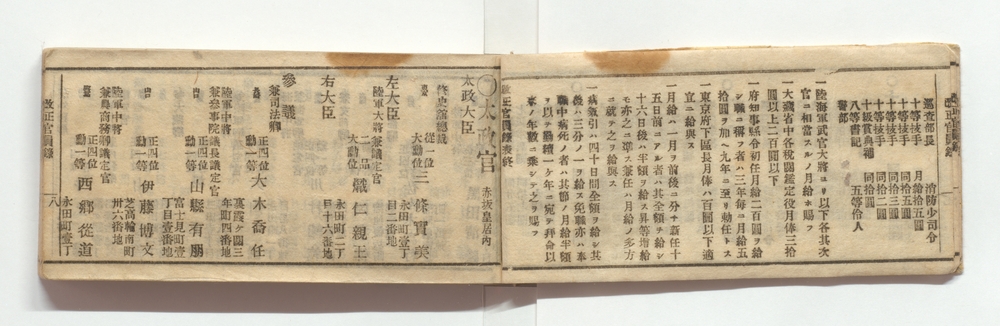 改正官員錄
巡査部長　消防少司令
十等　月給拾五圓
十等技手　同拾圓
十等技手　同拾二圓
七級賞典補　同拾圓
八等書記　五等伶人
警部
一陸海軍武官大將ヨリ以下各其次
官ニ相當スルノ月給ホ賜フ
一大藏省中各稅關鑑定役月俸三拾
圓以上二百圓以下
一府知事縣令初任月給二百圓ヲ給
シ職ニ稱フ者ハ三年每ニ月給五
拾圓ヲ加ヘ九年ニ至リ勅任トス
一東京府下區長月俸ハ百圓以下適
宜ニ給與ス
一月給ハ一月ヲ前後ニ分チ新任十
五日前ニアル者ハ其全額ヲ給シ
十六日後ハ半額ヲ給ス昇等增給
モ亦之ニ準ス兼任ハ月給ノ多方
ニ就テ之ヲ給與ス
一病氣引ハ四十日間全額ヲ給シ其
後ハ三分ノ一ヲ給ス免職亦ハ奉
職中病死ノ者ハ其節ノ月給半額
ヲ與ヘ勤續一ケ年ニ宛テ拜命以
來ノ年數ニ乘シテ之ヲ賜フ
改正官員錄表終
○太政官　赤坂皇居內
太政大臣
修史館總裁
從一位
大勳位　三條實美
永田町壹丁
目二番地
左大臣
陸軍大將兼議定官
一品
大勳位　熾仁親王
永田町二丁
目十六番地
右大臣
參議
兼司法卿
正四位
勳一等　大木喬任
裏霞ケ關三
年町四番地
陸軍中將
兼參事院議長議定官
正四位
勳一等　山縣有朋
富士見町壹
丁目壹番地
正四位
勳一等　伊藤博文
芝高輪南町
卅六番地
陸軍中將
兼農商務卿議定官
正四位
勳一等　西鄕從道
永田町壹丁
改正官員錄　八